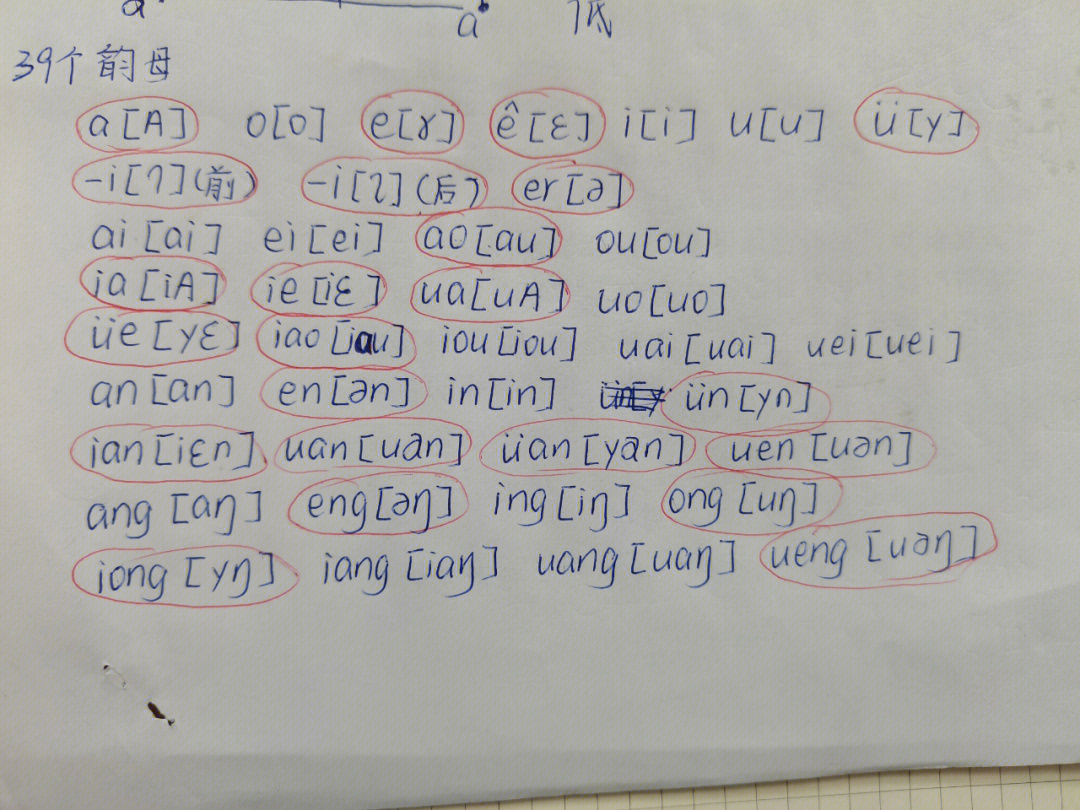 a a 低
39个韵母
a[A] o[o] e[ɤ] ê[ɛ] i[i] u[u] ü[y]
-i[ɿ](前) -i[ʅ](后) er[ə]
ai[ai] ei[ei] ao[au] ou[ou]
ia[iA] ie[iɛ] ua[uA] uo[uo]
üe[yɛ] iao[iau] iou[iou] uai[uai] uei[uei]
an[an] en[ən] in[in] ün[yn]
ian[iɛn] uan[uan] üan[yan] uen[uən]
ang[aŋ] eng[əŋ] ing[iŋ] ong[uŋ]
iong[yŋ] iang[iaŋ] uang[uaŋ] ueng[uəŋ]